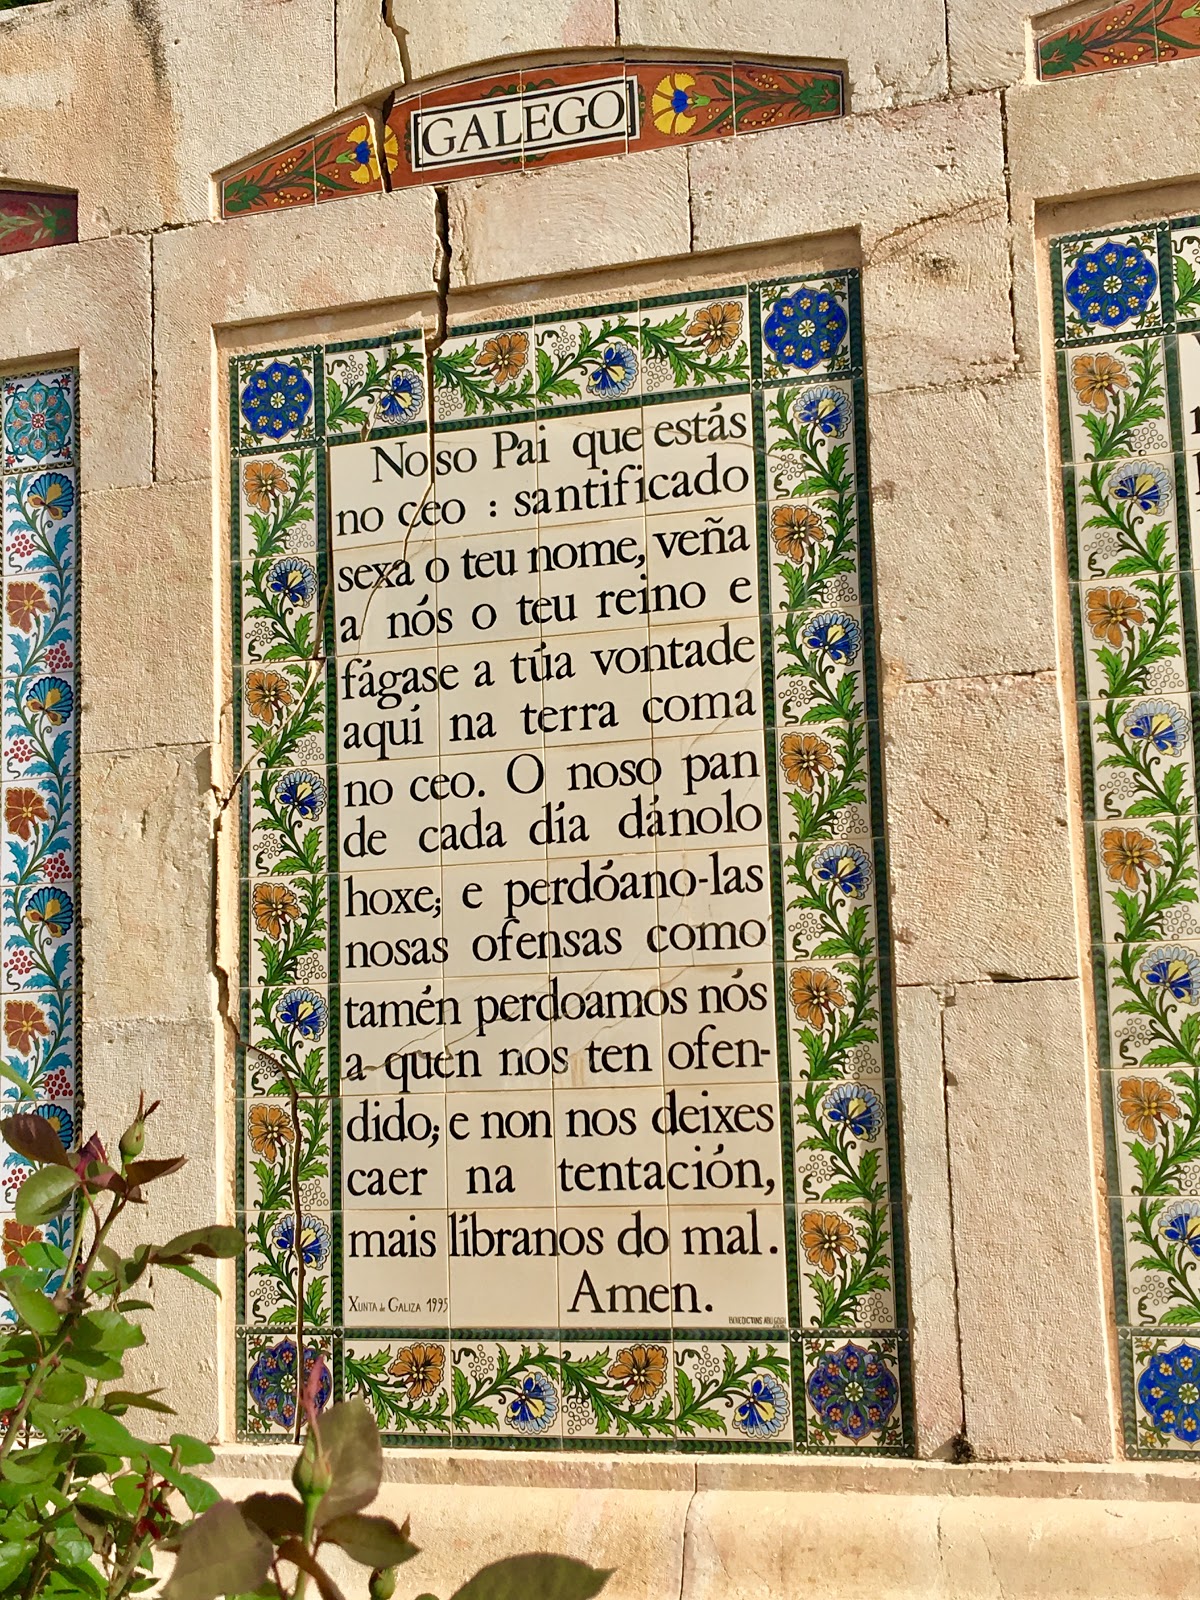 GALEGO
Noso Pai que estás
no ceo : santificado
sexa o teu nome, veña
a nós o teu reino e
fágase a túa vontade
aquí na terra coma
no ceo. O noso pan
de cada día dánolo
hoxe; e perdóano-las
nosas ofensas como
tamén perdoamos nós
a quen nos ten ofen-
dido; e non nos deixes
caer na tentación,
mais líbranos do mal.
Amen.
XUNTA de GALIZA 1995
BENEDICTINS